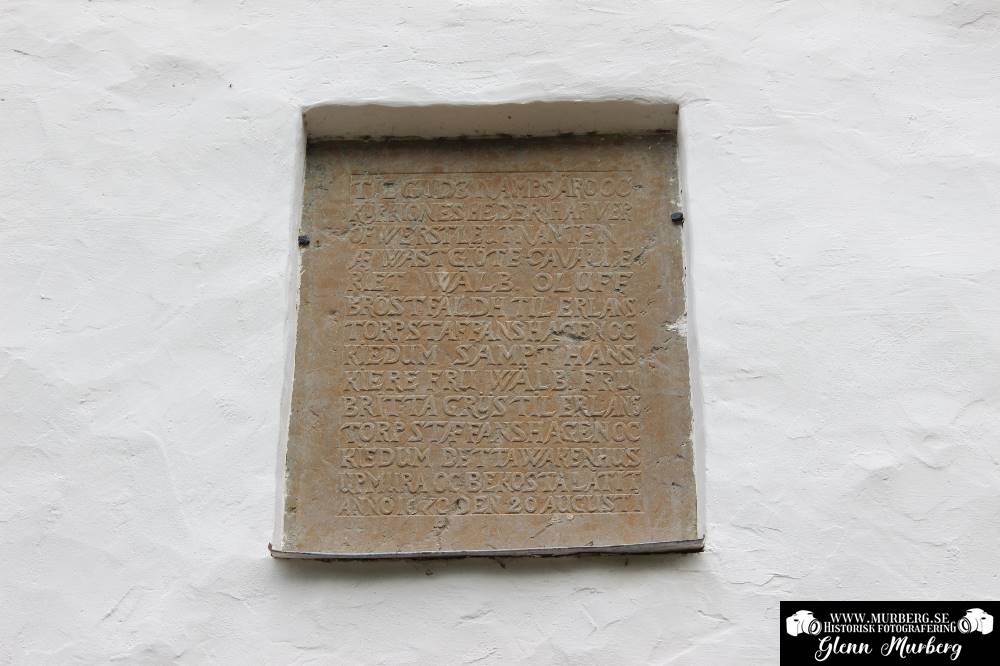 TIL GUDZ NAMPS ÄRO OC
KYRKIONES HEDER HAFVER
ÖFWERSTLEUTNANTEN
AF WÄSTGIÖTE CAVALLE
RIET WÄLB. OLUFF
BRÖSTFÄLDH TIL ERLANS
TORP STAFFANSHAGEN OC
KIEDUM SAMPT HANS
KIERE FRU WÄLB. FRU
BRITTA GRIJS TIL ERLANS
TORP STAFFANSHAGEN OC
KIEDUM DETTA WAKENHUS
UPMURA OC BEKOSTA LATIT
ANNO 1670 DEN 20 AUGUSTI
WWW.MURBERG.SE
HISTORISK FOTOGRAFERING
Glenn Murberg